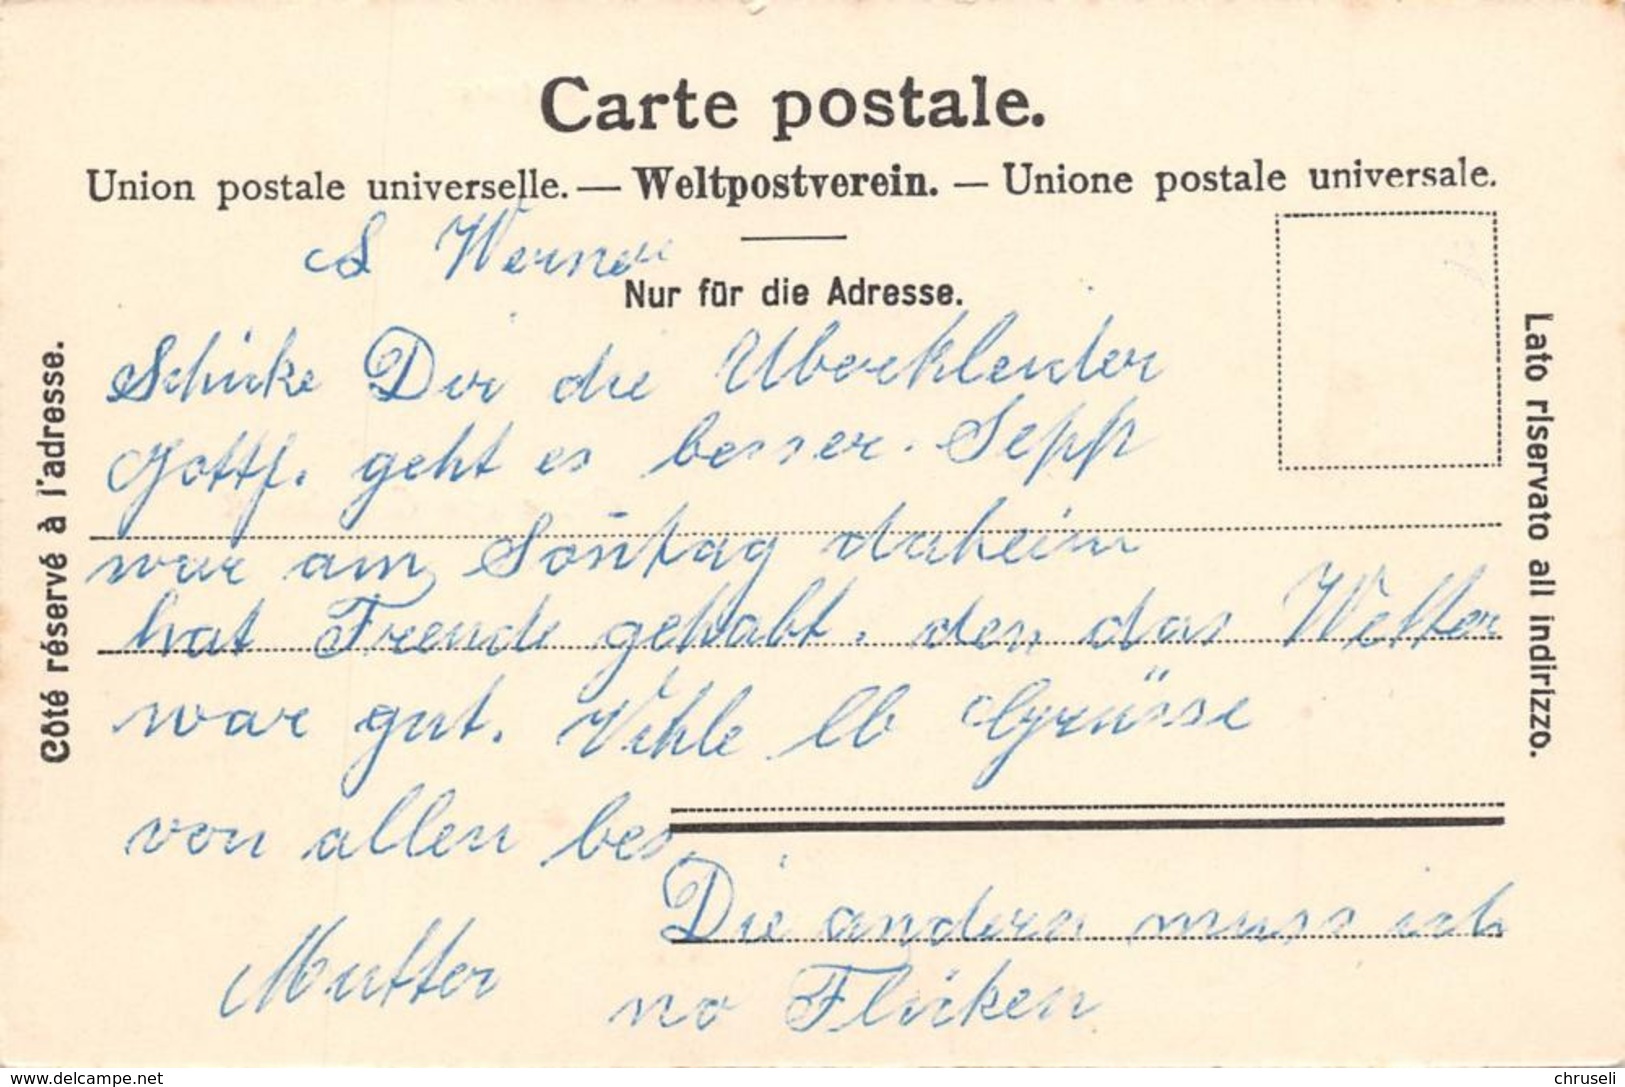 Carte postale.
Union postale universelle. — Weltpostverein. — Unione postale universale.
S Werner
Nur für die Adresse.
Côté réservé à l'adresse.
Lato riservato all indirizzo.
Schicke Dir die Uberkleider
Gottf. geht es besser. Sepp
war am Soñtag daheim
hat Freude gehabt. den das Wetter
war gut. Viehle lb Grüsse
von allen bes.
Mutter
Die andern muss ich
no Flicken
www.delcampe.net
chruseli